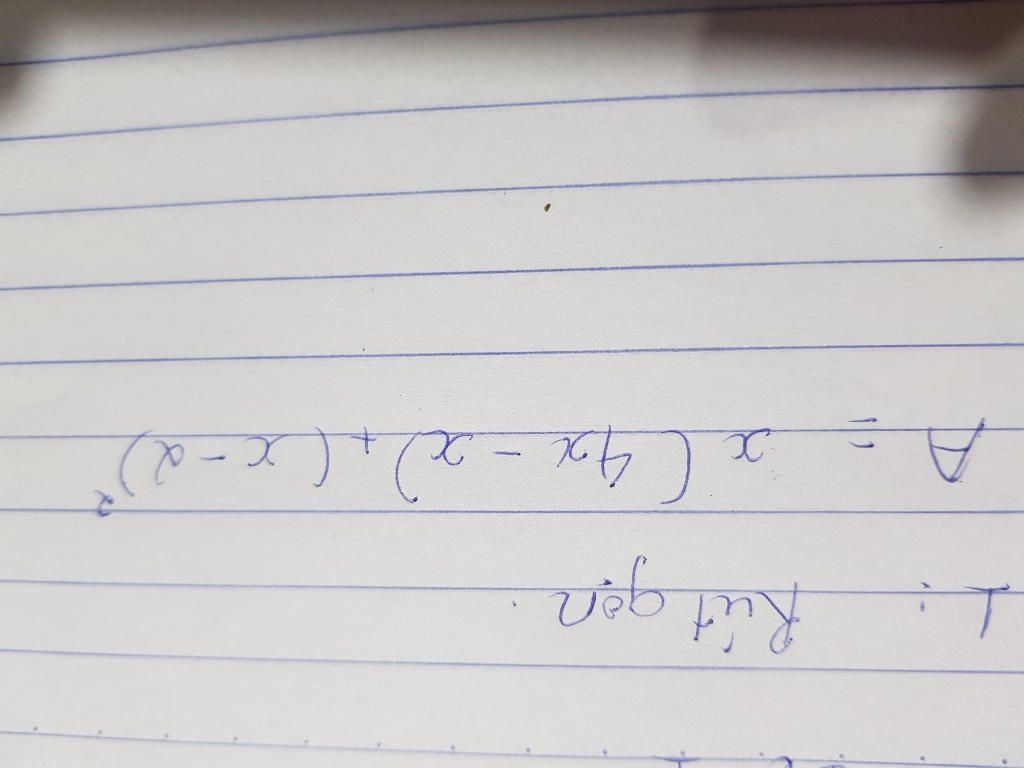 1: Rút gọn.
A = x(4x - x) + (x - 2)²